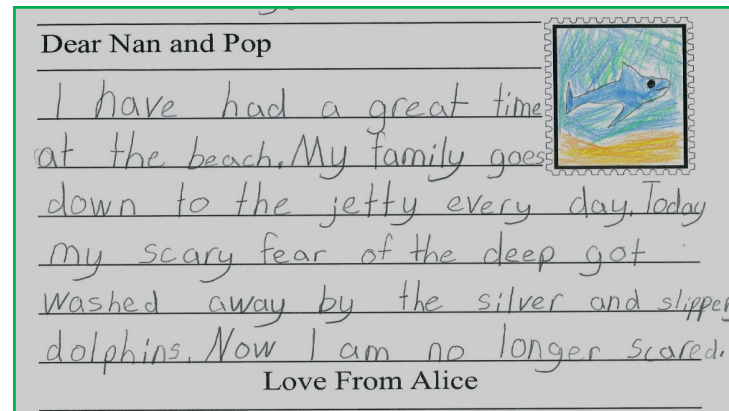 Dear Nan and Pop
I have had a great time
at the beach. My family goes
down to the jetty every day. Today
my scary fear of the deep got
washed away by the silver and slippery
dolphins. Now I am no longer scared.
Love From Alice